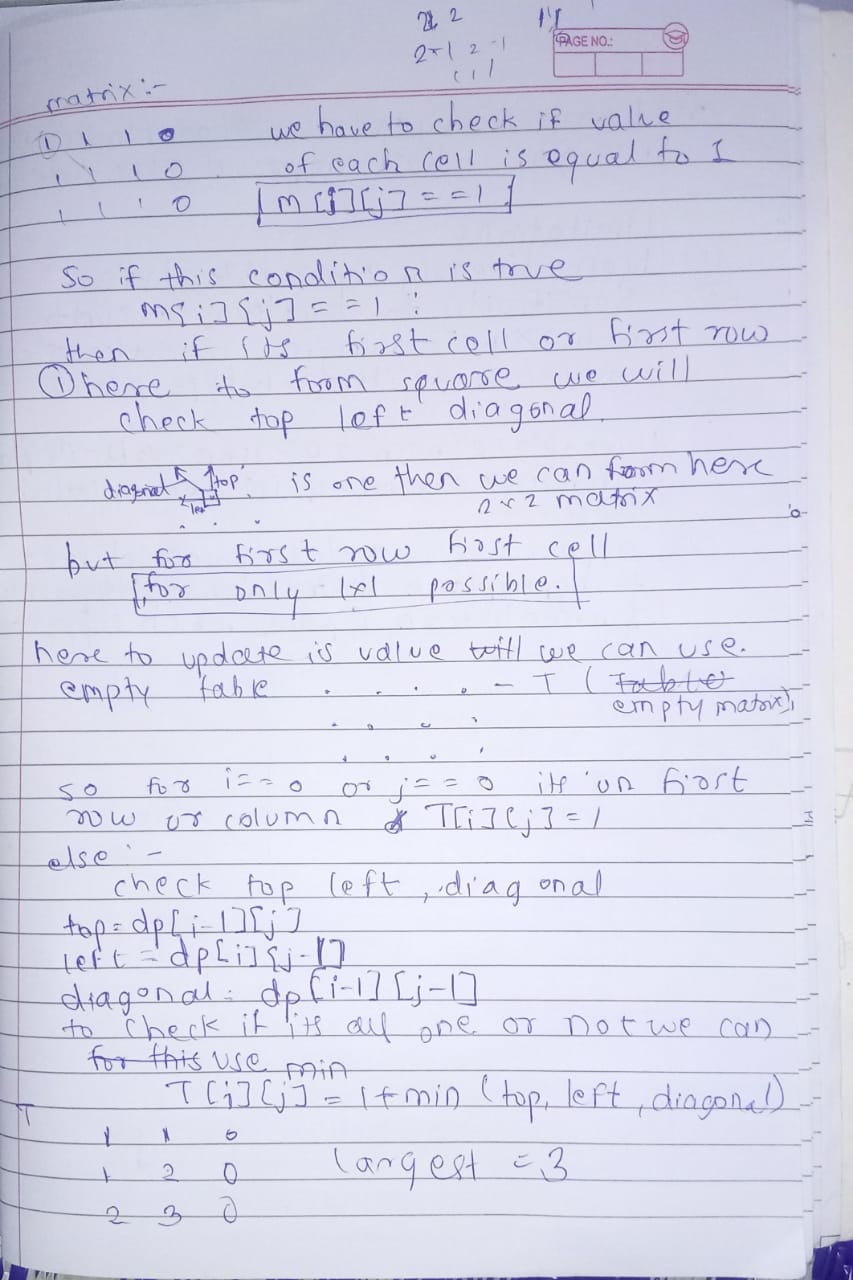 2 2 11
PAGE NO.:
2*1 2-1
(11
matrix :-
1 1 1 0 we have to check if value
1 1 1 0 of each cell is equal to 1
1 1 1 0 [m[i][j] == 1]
So if this condition is true
m[i][j] == 1 :
then if its first cell or first row
① here to form square we will
check top left diagonal.
diagonal top is one then we can form here
left 2x2 matrix
but for first row first cell
[for only 1x1 possible.]
here to update is value we can use.
empty table . . . . - T ( Table
empty matrix)
so for i==0 or j==0 its on first
row or column T[i][j]=1
else :-
check top left, diagonal
top=dp[i-1][j]
left = dp[i][j-1]
diagonal= dp[i-1][j-1]
to check if its all one or not we can
for this use min
T[i][j] = 1+min (top, left, diagonal)
T
1 1 0
1 2 0 largest = 3
2 3 0